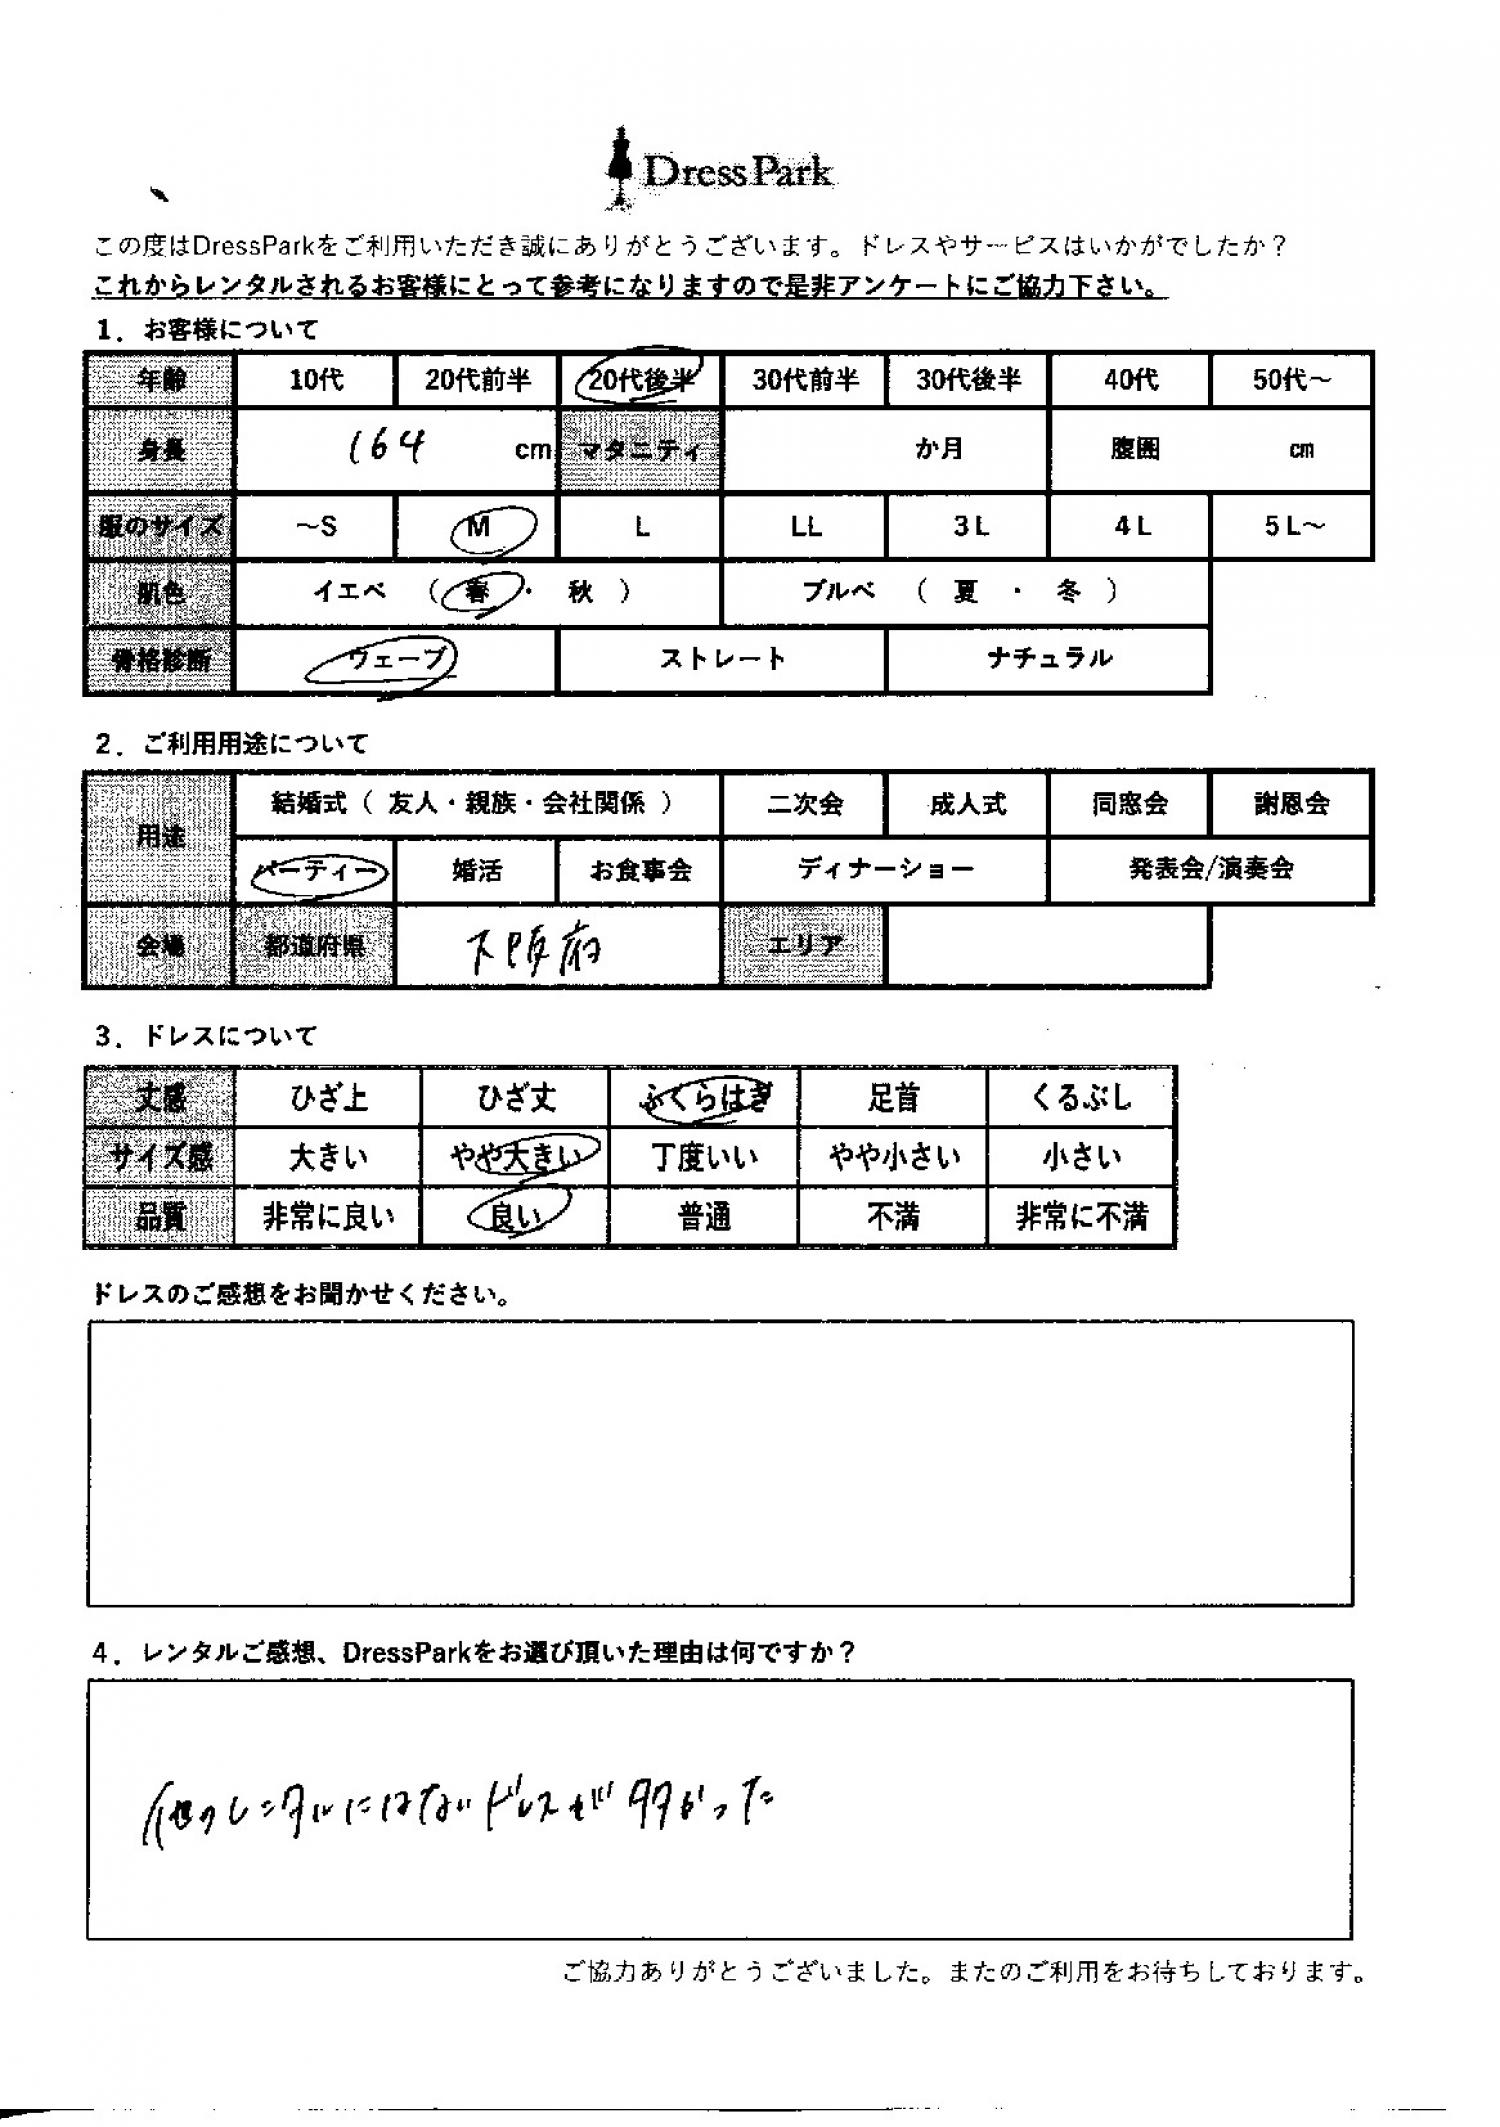 DressPark
この度はDressParkをご利用いただき誠にありがとうございます。ドレスやサービスはいかがでしたか？
これからレンタルされるお客様にとって参考になりますので是非アンケートにご協力下さい。
1．お客様について
年齢 10代 20代前半 20代後半 30代前半 30代後半 40代 50代～
身長 164 cm マタニティ か月 腹囲 cm
服のサイズ ～S M L LL 3L 4L 5L～
肌色 イエベ （ 春 ・ 秋 ） ブルベ （ 夏 ・ 冬 ）
骨格診断 ウェーブ ストレート ナチュラル
2．ご利用用途について
用途 結婚式（ 友人・親族・会社関係 ） 二次会 成人式 同窓会 謝恩会
パーティー 婚活 お食事会 ディナーショー 発表会/演奏会
会場 都道府県 大阪府 エリア
3．ドレスについて
丈感 ひざ上 ひざ丈 ふくらはぎ 足首 くるぶし
サイズ感 大きい やや大きい 丁度いい やや小さい 小さい
品質 非常に良い 良い 普通 不満 非常に不満
ドレスのご感想をお聞かせください。
4．レンタルご感想、DressParkをお選び頂いた理由は何ですか？
他のレンタルにはないドレスが多かった
ご協力ありがとうございました。またのご利用をお待ちしております。